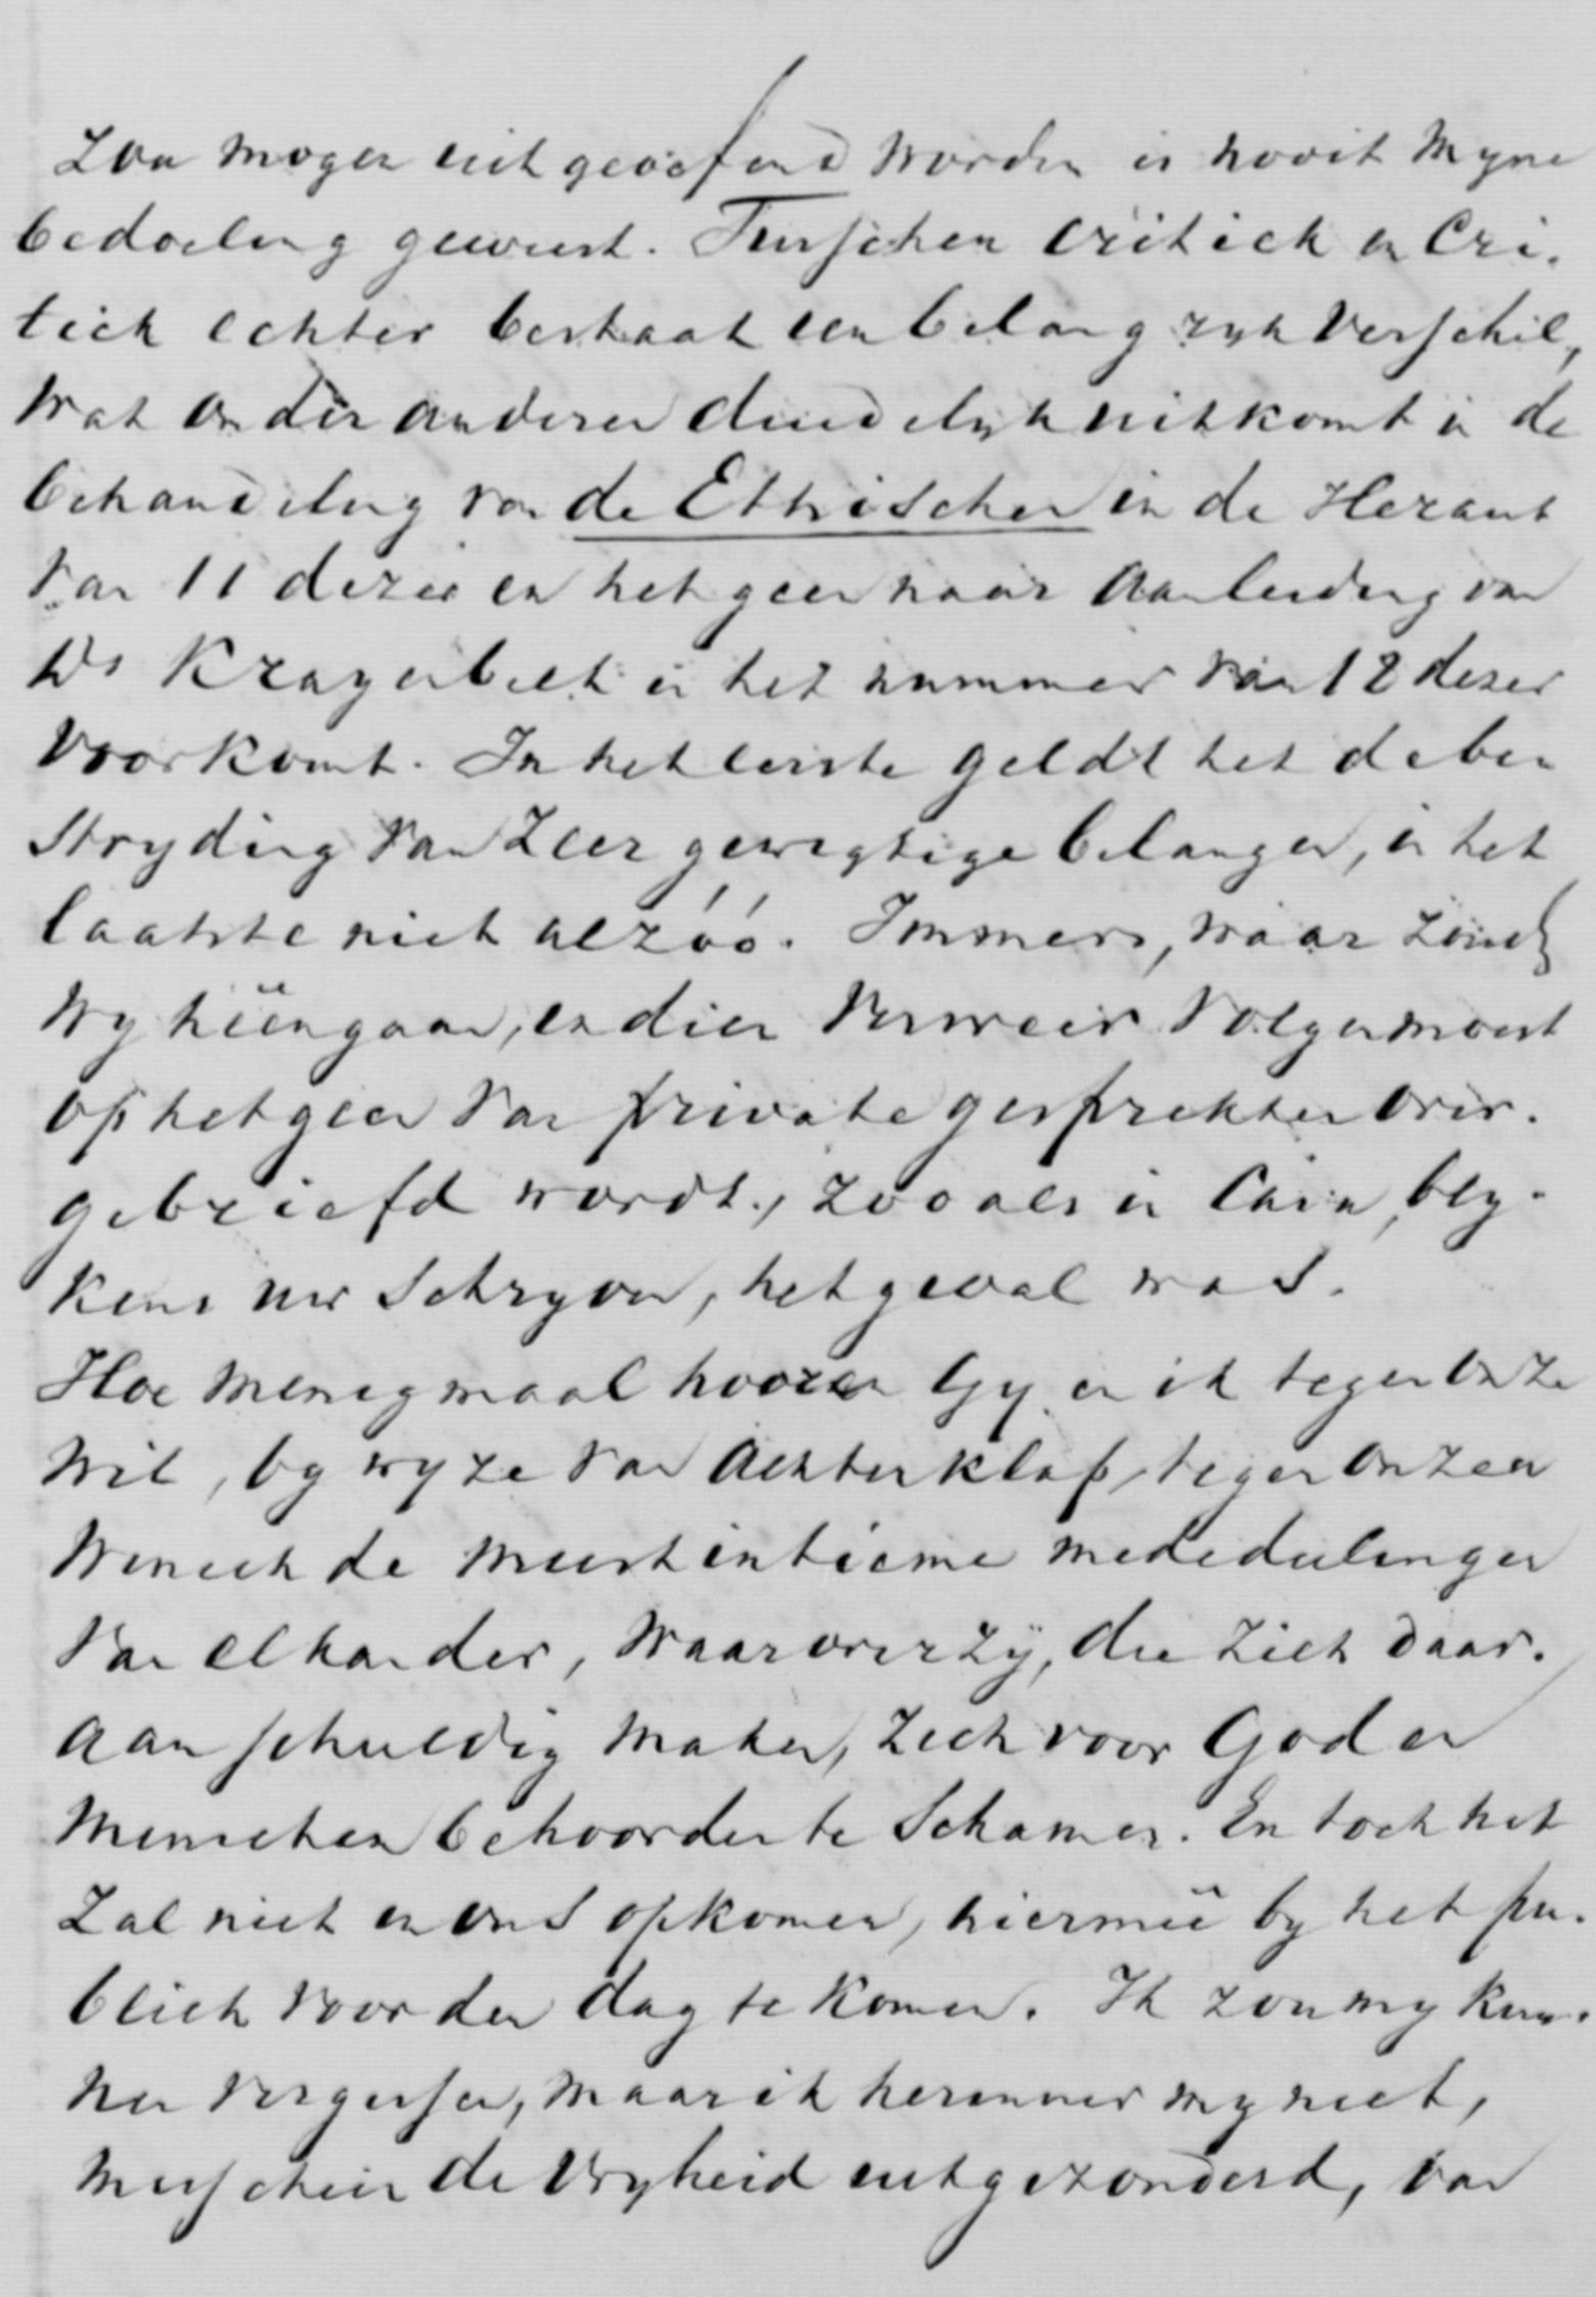 zou mogen uitgeoefend worden is nooit myne
bedoeling geweest. Tusschen critiek en Cri-
tiek echter bestaat een belangryk verschil,
wat onder anderen duidelyk uitkomt in de
behandeling van de Ethischen in de Heraut
van 11 dezer en hetgeen naar aanleiding van
Ds Krayenbelt in het nummer van 18 dezer
voorkomt. In het eerste geldt het de be
stryding van zeer gewigtige belangen, in het
laatste niet alzóó. Immers, waar zoud
wy héengaan, indien verweer volgen moest
op hetgeen van private gesprekken over-
gebriefd wordt, zooals in casu, bly-
kens uw schryven, het geval was.
Hoe menigmaal hooren Gy en ik tegen onze
wil, by wyze van achterklap, tegen onzen
wensch de meest intieme mededeelingen
van elkander, waarover zÿ, die zich daar-
aan schuldig maken, zich voor God en
menschen behoorden te schamen. En toch het
zal niet in ons opkomen, hiermeê by het pu-
bliek voor den dag te komen. Ik zou my kun-
nen vergissen, maar ik herinner my niet,
misschien de Vryheid uitgezonderd, van